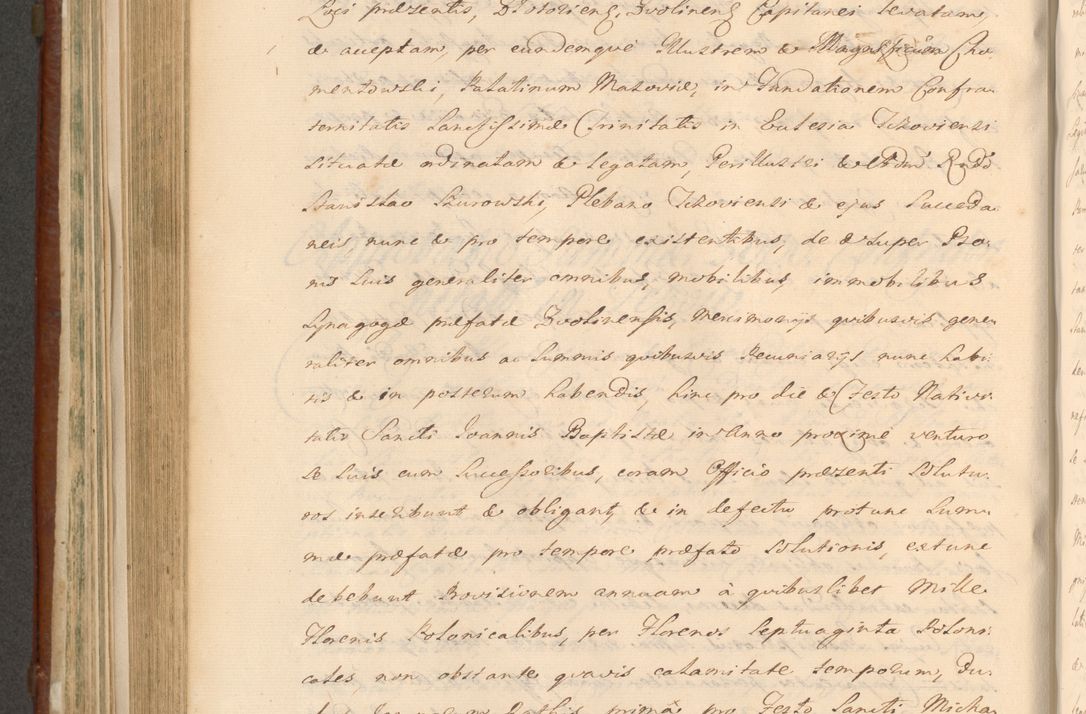 Loci præsentis, Divolinens Capitanei levatam,
& acceptam, per eundemque Illustrem & Magnificum Cho-
mentowski, Palatinum Masoviæ, in Fundationem Confra-
ternitatis Sanctissimæ Trinitatis in Eclesia Tczoviensi
situatæ ordinatam & legatam, Perillustri & Adm Rndo
Stanislao Szurowski, Plebano Tczoviensi & ejus Succeda-
neis, nunc & pro tempore existentibus, de & super Bo-
nis Suis generaliter omnibus, mobilibus, immobilibus
Synagogæ præfatæ Zvolinensis, Mercimonijs quibusvis gene-
raliter omnibus ac Summis quibusvis Pecuniarijs nunc habi-
tis & in posterum habendis, hinc pro die & Festo Nativi-
tatis Sancti Joannis Baptistæ in Anno proximé venturo
Se Suis cum Successoribus, coram Officio præsenti Solutu-
ros inscribunt & obligant, & in defectu protunc Sum-
mæ præfatæ pro tempore præfato Solutionis, extunc
debebunt Provisionem annuam à quibuslibet Mille
Florenis Polonicalibus, per Florenos Septuaginta Poloni-
cales, non obstante quavis calamitate temporum, Du-
primâ pro Festo Sancti Micha-